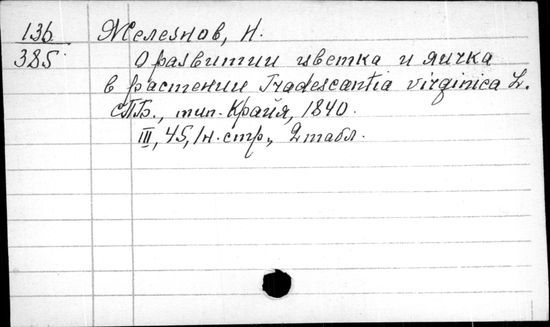 136
385
Железнов, Н.
О развитии цветка и яичка
в растении Tradescantia virginica L.
СПБ., тип. Крайя, 1840.
III, 45, 1н. стр., 2 табл.